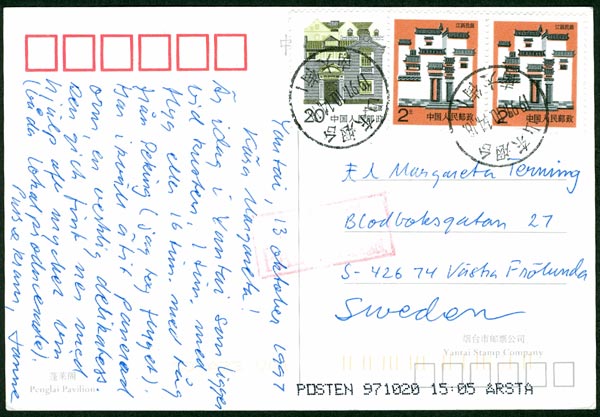 Yantai, 13 oktober 1997
Kära Margareta!
Är idag i Yantai som ligger
vid kusten, 1 tim. med
flyg eller 16 tim. med tåg
från Peking (jag tog flyget).
Har ikväll ätit panerad
orm, en verklig delikatess.
Den gick fint ner med
hjälp av mycket vin
(båda lokalproducerade).
Puss o kram, Janne
蓬莱阁
Penglai Pavilion
20分 中国人民邮政
江西民居
2元 中国人民邮政
江西民居
中国人民邮政
山东烟台
山东烟台
Margareta Terning
Blodboksgatan 27
S-426 74 Västra Frölunda
Sweden
烟台市邮票公司
Yantai Stamp Company
POSTEN 971020 15:05 ÅRSTA